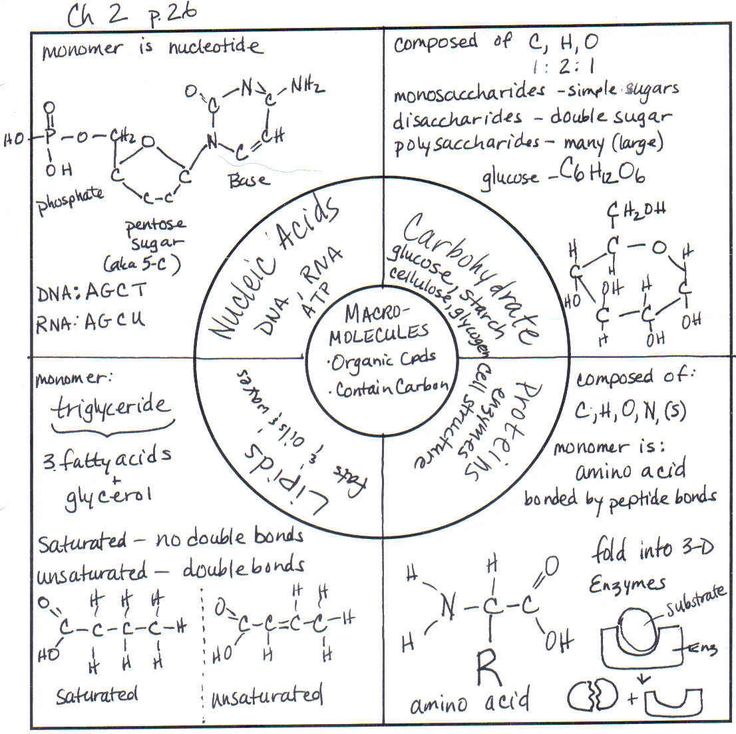 Ch 2 p.26
monomer is nucleotide
O
HO-P-O-CH2
OH
phosphate
O
C
C-C
C
pentose
sugar
(aka 5-C)
O
C
N
C-NH2
N
C
CH
Base
DNA: AGCT
RNA: AGCU
composed of C, H, O
1:2:1
monosaccharides - simple sugars
disaccharides - double sugar
polysaccharides - many (large)
glucose - C6H12O6
CH2OH
H
C
O
H
C
OH
H
C
HO
C
C
OH
H
OH
Nucleic Acids
DNA, RNA
ATP
Carbohydrate
glucose, starch
cellulose, glycogen
MACRO-
MOLECULES
·Organic Cpds
·Contain Carbon
Lipids
fats & oils & waxes
Proteins
enzymes
cell structure
monomer:
triglyceride
3 fatty acids
+
glycerol
saturated - no double bonds
unsaturated - double bonds
H H H
O
C-C-C-C-H
HO
H H H
saturated
H H
O
C-C=C-C-H
HO
H H
unsaturated
composed of:
C, H, O, N, (S)
monomer is:
amino acid
bonded by peptide bonds
H
H
N-C-C
O
H
OH
R
amino acid
fold into 3-D
Enzymes
substrate
Enz
+